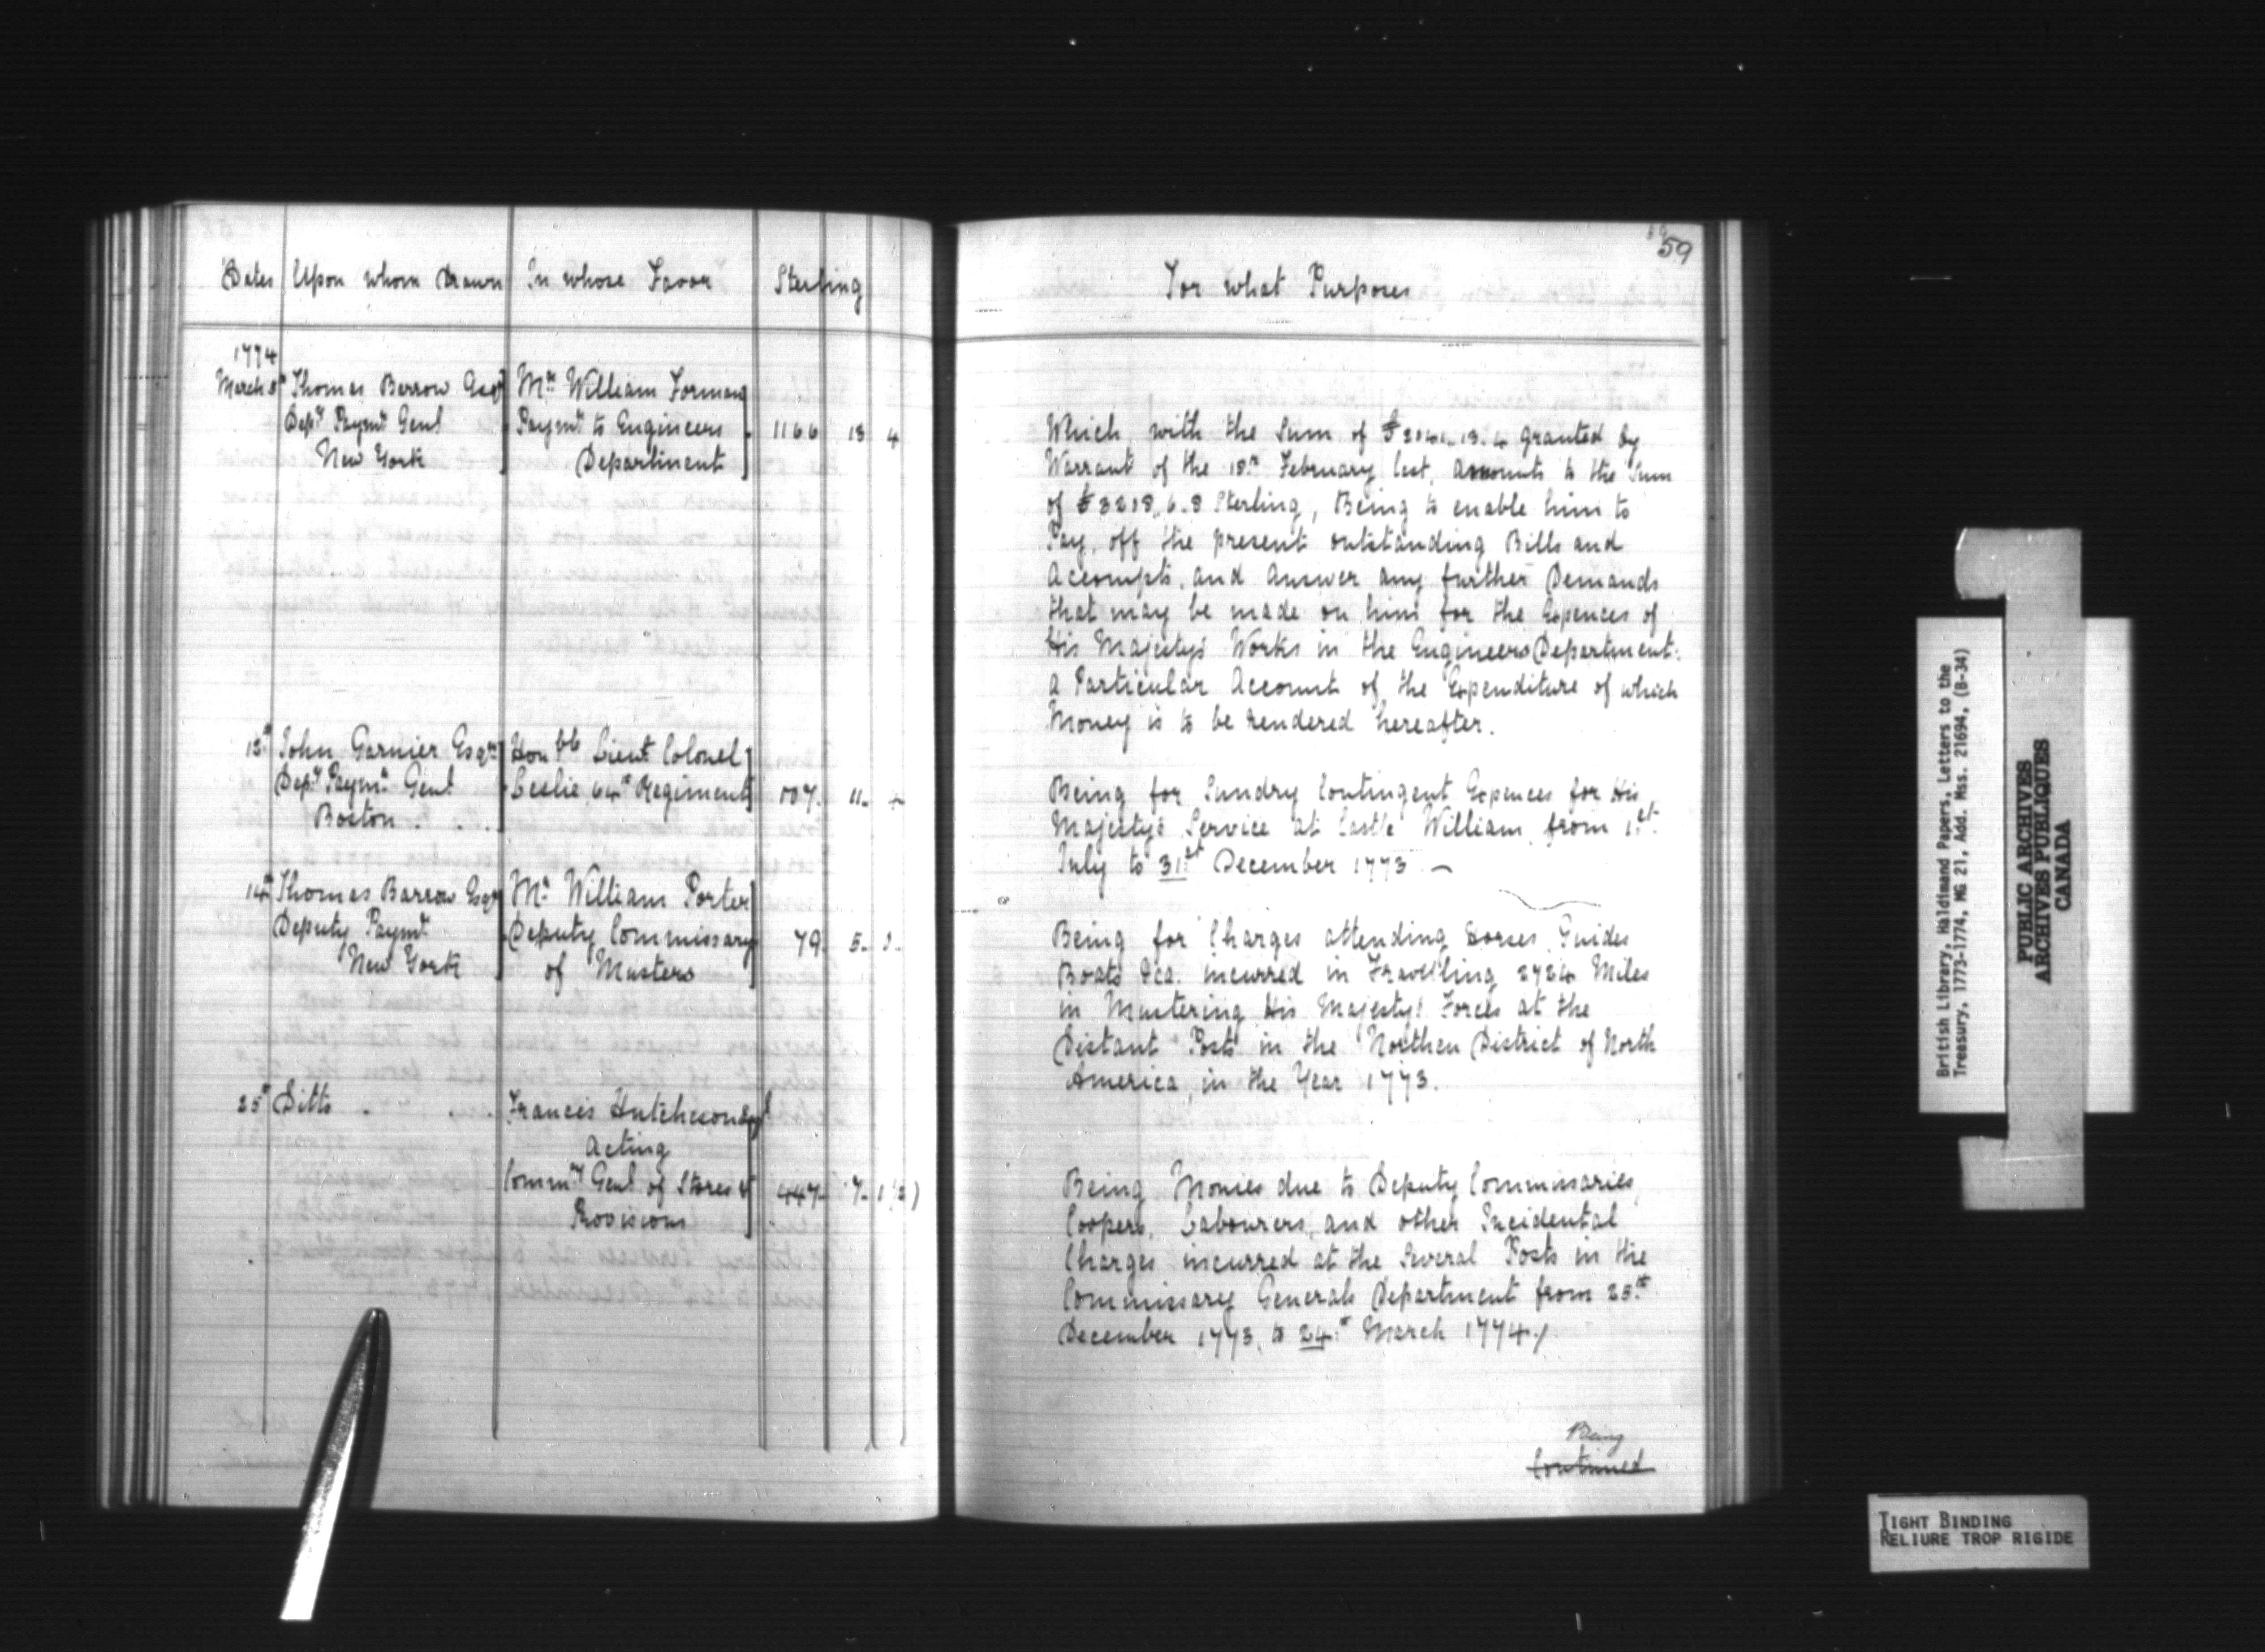 59
Dates Upon whom Drawn In whose Favor Sterling
For what Purposes
1774
March 8th Thomas Barrow Esqr Mr. William Forman
Depy Paymr Genl Paymr to Engineers 1166 13 4
New York Department
Which, with the Sum of £2041..13.4 granted by
Warrant of the 18th February last, amounts to the Sum
of £3218..6.8 Sterling, Being to enable him to
Pay, off the present outstanding Bills and
Accompts, and answer any further Demands
that may be made on him for the Expences of
His Majesty's Works in the Engineers Department:
a Particular Account of the Expenditure of which
Money is to be rendered hereafter.
John Garnier Esqr Honble Lieut Colonel
Depy Paymr Genl Leslie 64th Regiment 11
Boston . . .
Being for Sundry Contingent Expences for His
Majesty's Service at Castle William, from 1st
July to 31st December 1773 —
14th Thomas Barrow Esqr Mr. William Porter
Deputy Paymr Deputy Commissary 79 5
New York of Musters
Being for Charges attending Horses, Guides
Boats &ca. incurred in Travelling 2724 Miles
in Mustering His Majesty's Forces at the
Distant Posts in the Northen District of North
America, in the Year 1773.
25th Ditto . . . Francis Hutcheson Esqr
Acting
Commy Genl of Stores & 447 7 1½
Provisions
Being Monies due to Deputy Commissaries,
Coopers, Labourers, and other Incidental
Charges incurred at the Several Posts in the
Commissary Generals Department from 25th
December 1773, to 24th March 1774./
Being
Continued
British Library, Haldimand Papers, Letters to the
Treasury, 1773-1774, MG 21, Add. Mss. 21694, (B-34)
PUBLIC ARCHIVES
ARCHIVES PUBLIQUES
CANADA
TIGHT BINDING
RELIURE TROP RIGIDE